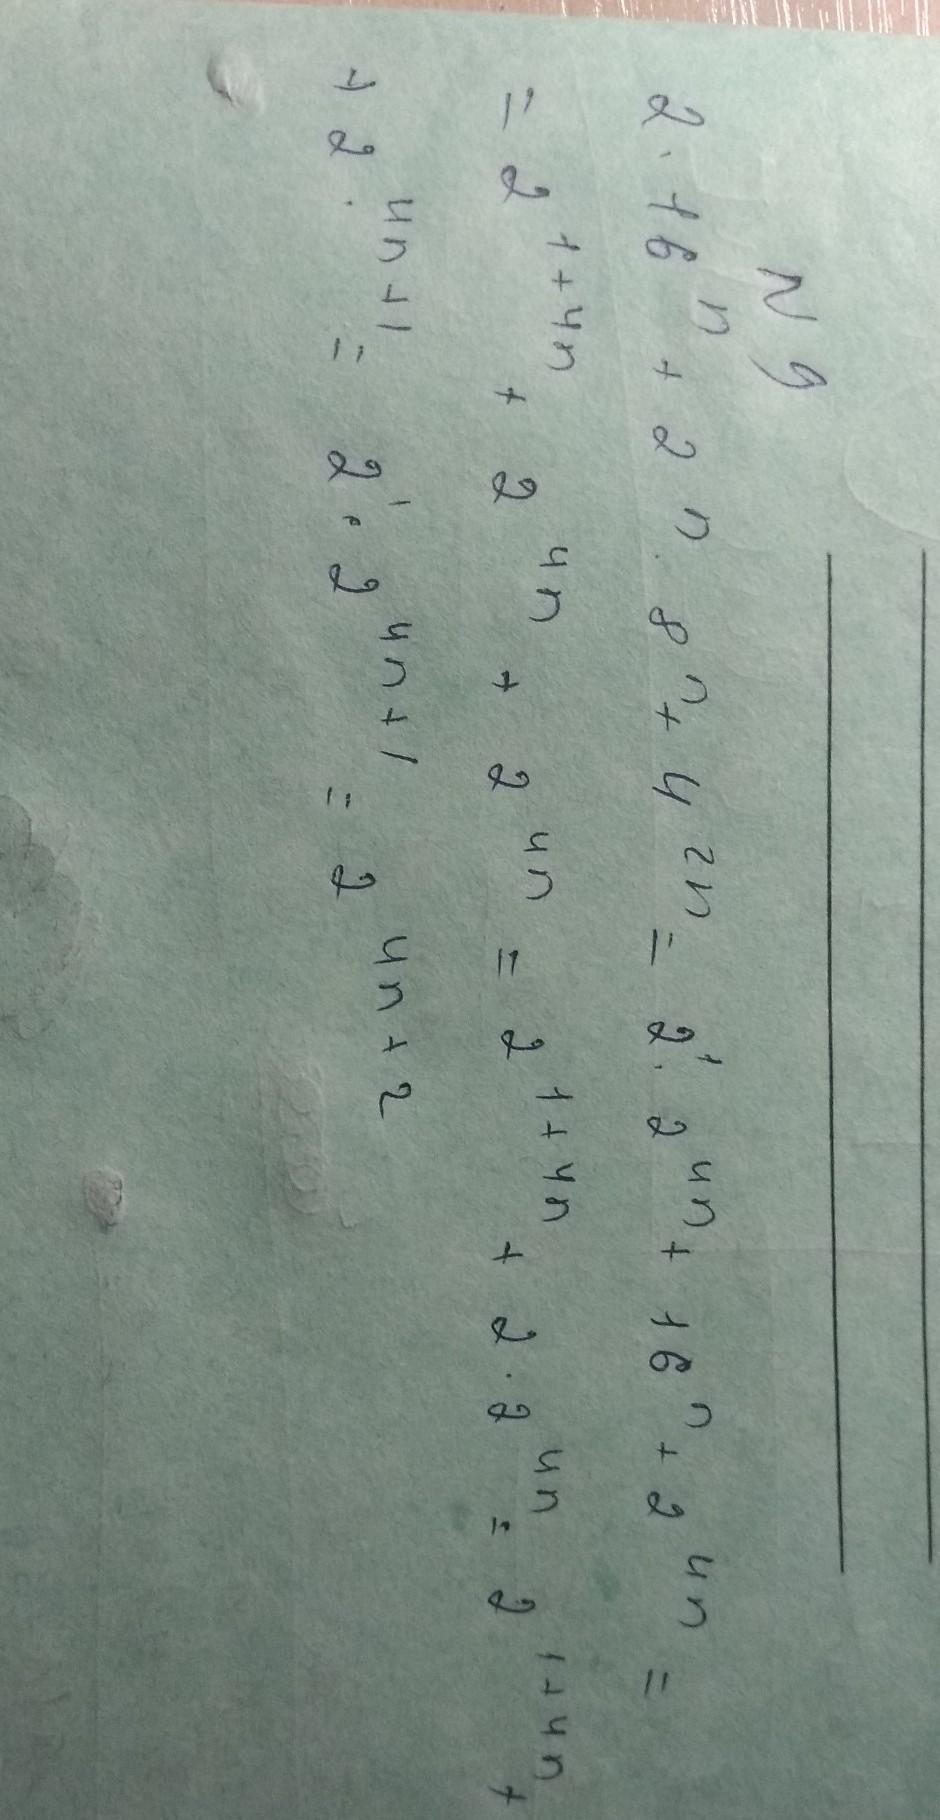 N 9
2 · 16ⁿ + 2ⁿ · 8ⁿ + 4²ⁿ = 2¹ · 2⁴ⁿ + 16ⁿ + 2⁴ⁿ =
= 2¹⁺⁴ⁿ + 2⁴ⁿ + 2⁴ⁿ = 2¹⁺⁴ⁿ + 2 · 2⁴ⁿ = 2¹⁺⁴ⁿ +
+ 2⁴ⁿ⁺¹ = 2¹ · 2⁴ⁿ⁺¹ = 2⁴ⁿ⁺²